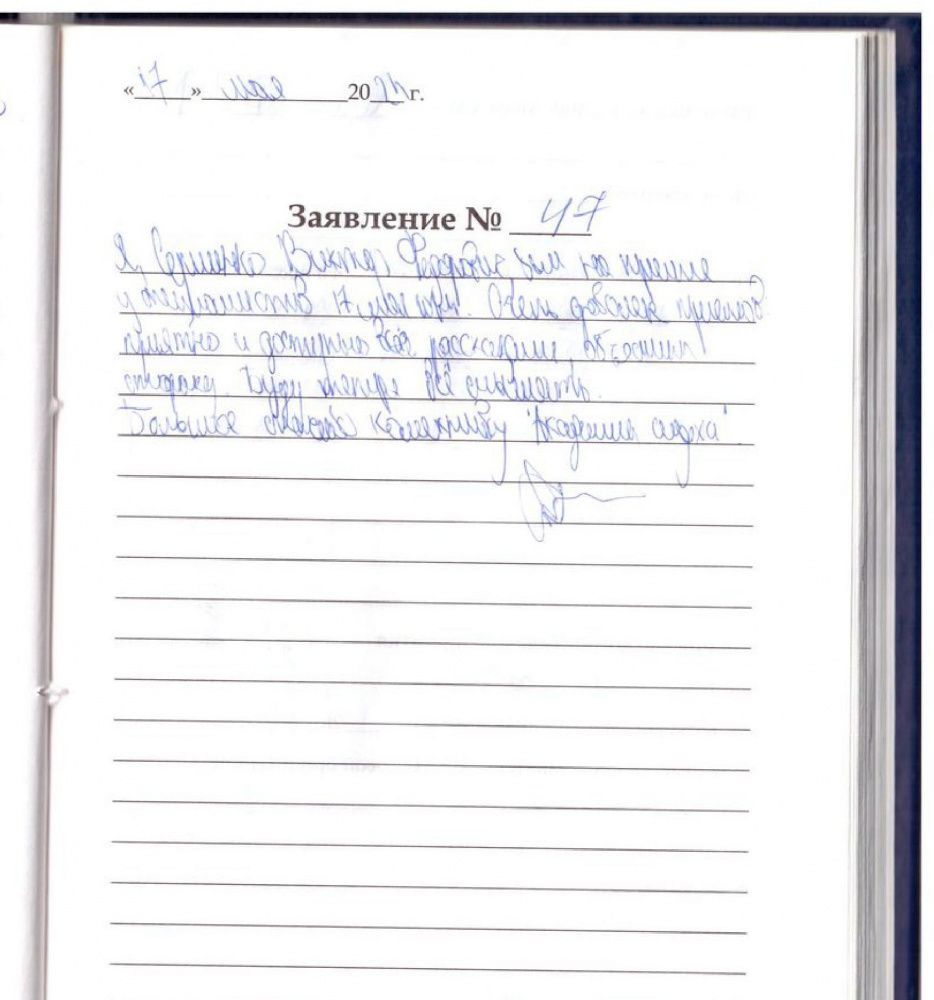 «17» мая 2024 г.
Заявление № 47
Я, Виктор Федорович, был на приеме
у специалиста 17 мая. Очень доволен приемом
приятно и доступно всё рассказали,
Буду теперь всё слышать.
Большое спасибо коллективу "Академия слуха".